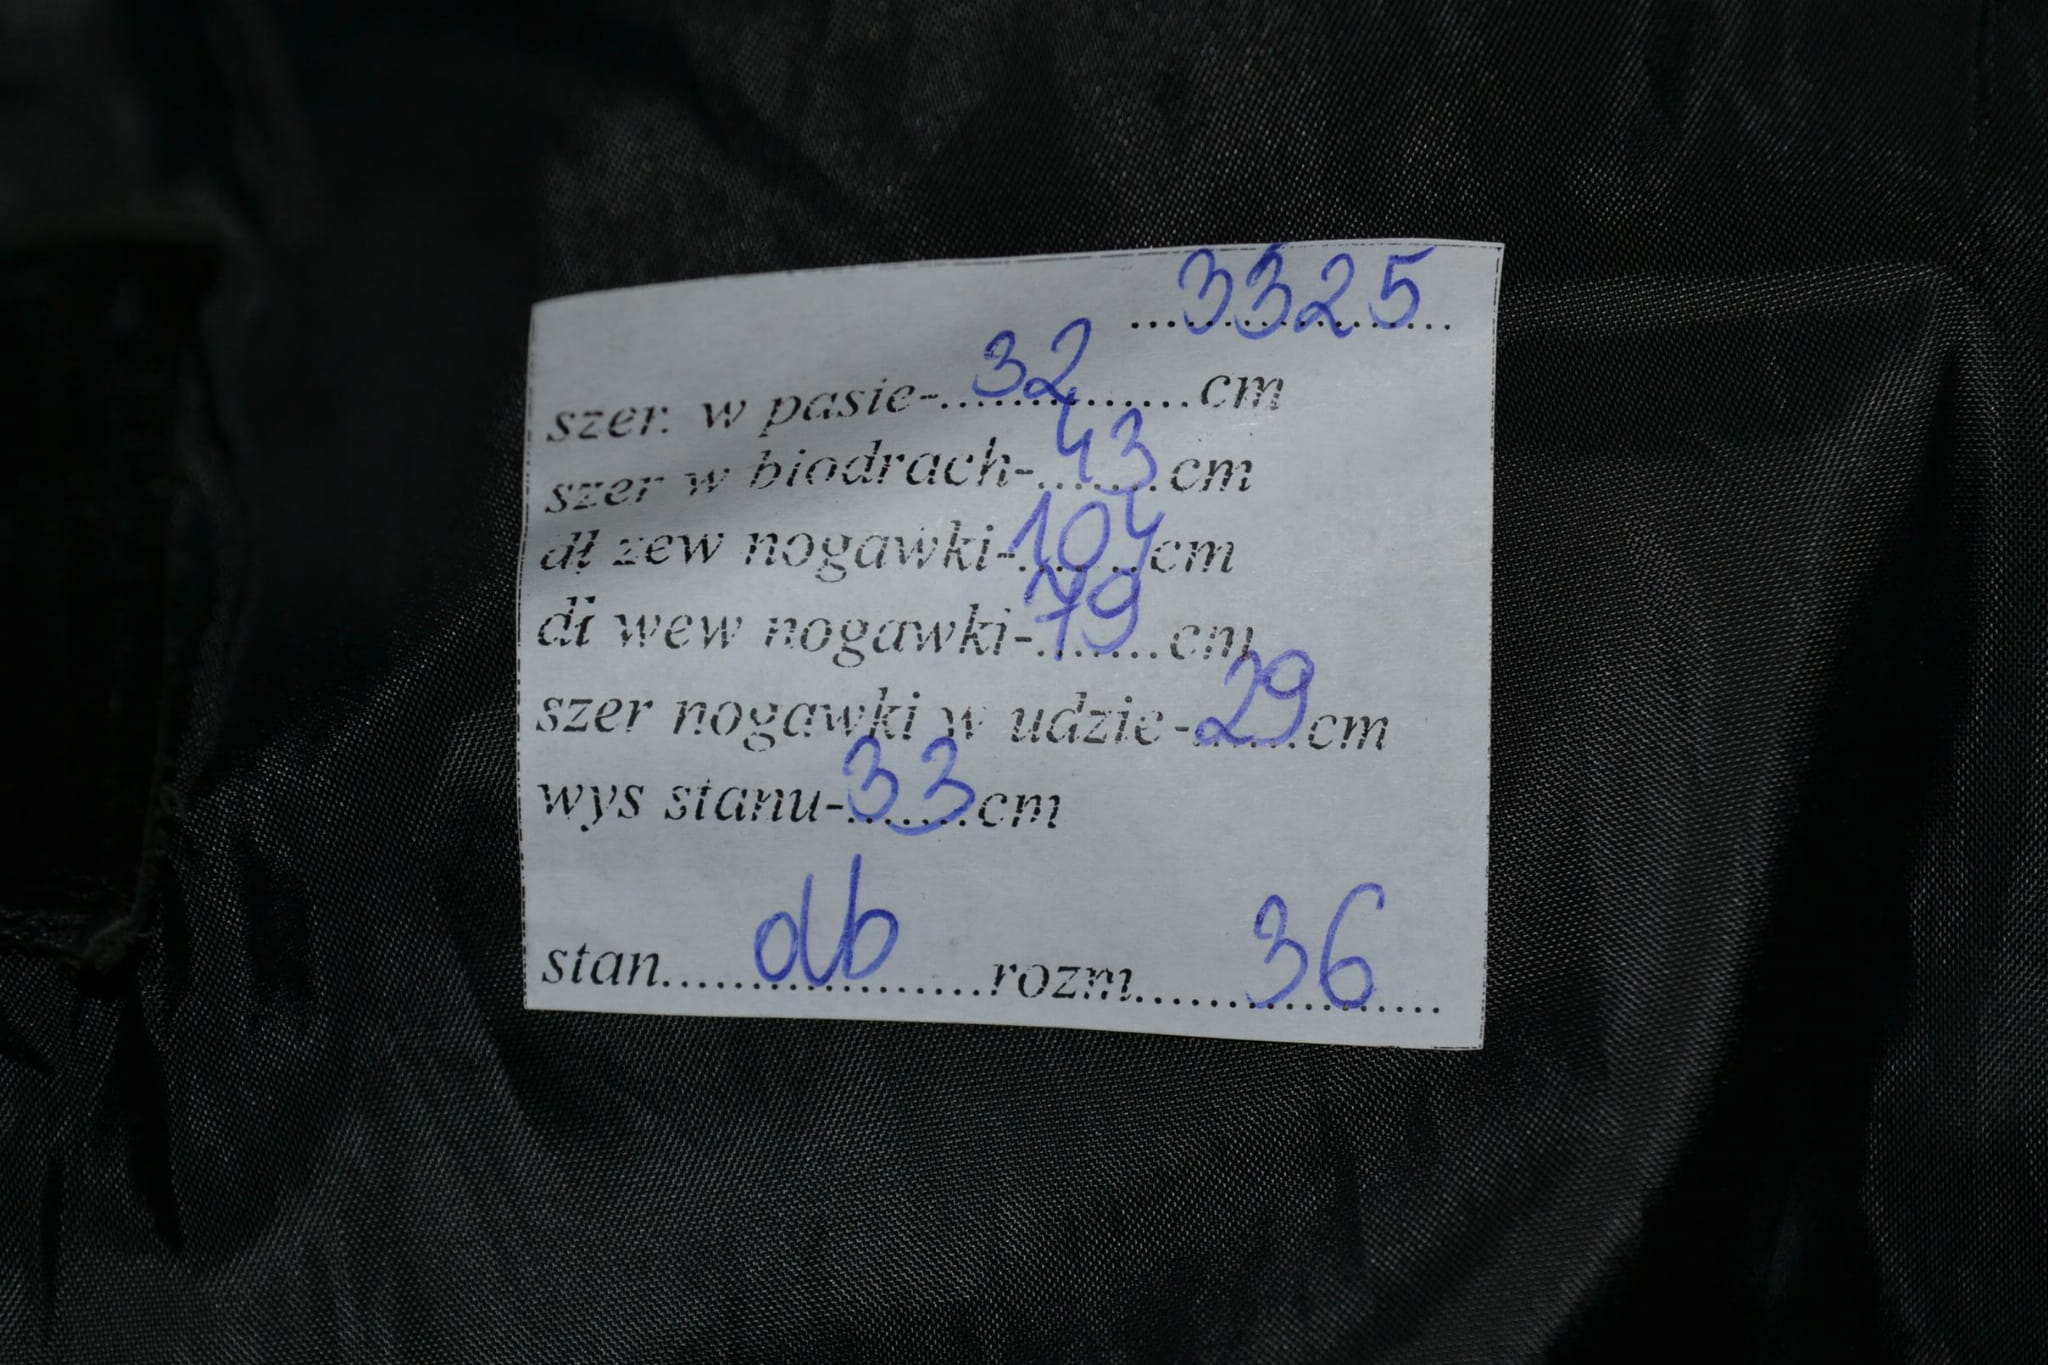 ...3325...
szer. w pasie-...32...cm
szer w biodrach-...43...cm
dł zew nogawki-...104...cm
dł wew nogawki-...79...cm
szer nogawki w udzie-...29...cm
wys stanu-...33...cm
stan...db...rozm...36...